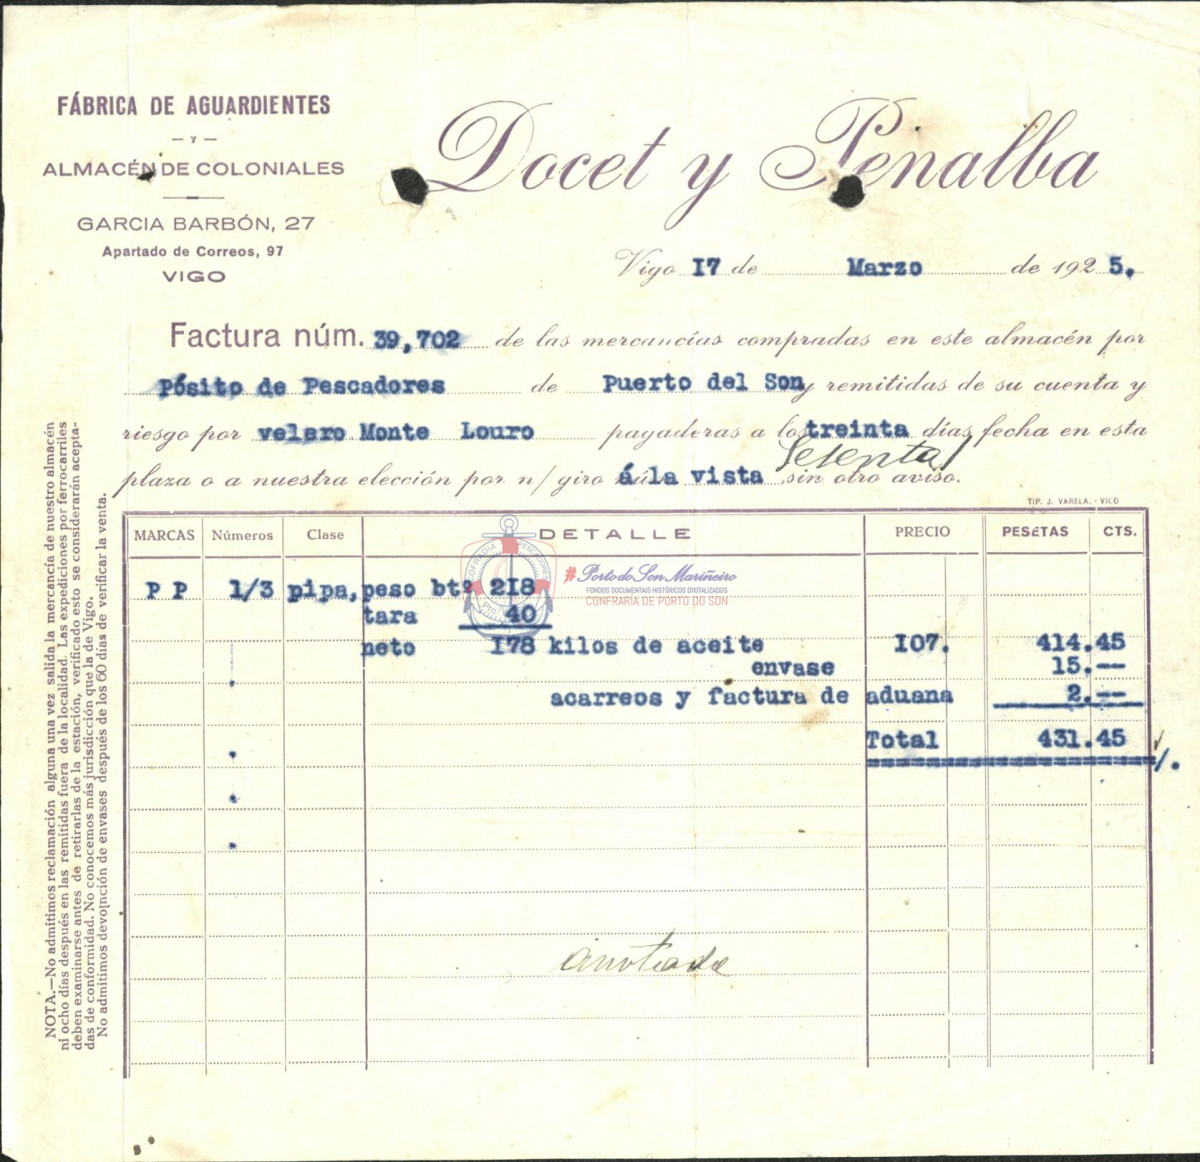 FÁBRICA DE AGUARDIENTES
— Y —
ALMACÉN DE COLONIALES
GARCIA BARBÓN, 27
Apartado de Correos, 97
VIGO
Docet y Penalba
Vigo 17 de Marzo de 1925.
Factura núm. 39,702 de las mercancías compradas en este almacén por
Pósito de Pescadores de Puerto del Son y remitidas de su cuenta y
riesgo por velero Monte Louro pagaderas a los treinta días fecha en esta
Setenta
plaza o a nuestra elección por n/ giro á la vista sin otro aviso.
TIP. J. VARELA. - VIGO
MARCAS Números Clase DETALLE PRECIO PESETAS CTS.
P P 1/3 pipa, peso btº 218
tara 40
neto 178 kilos de aceite 107. 414.45
envase 15.--
acarreos y factura de aduana 2.--
Total 431.45
anotada
NOTA.—No admitimos reclamación alguna una vez salida la mercancía de nuestro almacén
ni ocho días después en las remitidas fuera de la localidad. Las expediciones por ferrocarriles
deben examinarse antes de retirarlas de la estación, verificado esto se considerarán acepta-
das de conformidad. No conocemos más jurisdicción que la de Vigo.
No admitimos devolnción de envases después de los 60 días de verificar la venta.
#Porto do Son Mariñeiro
FONDOS DOCUMENTAIS HISTÓRICOS DIXITALIZADOS
CONFRARÍA DE PORTO DO SON